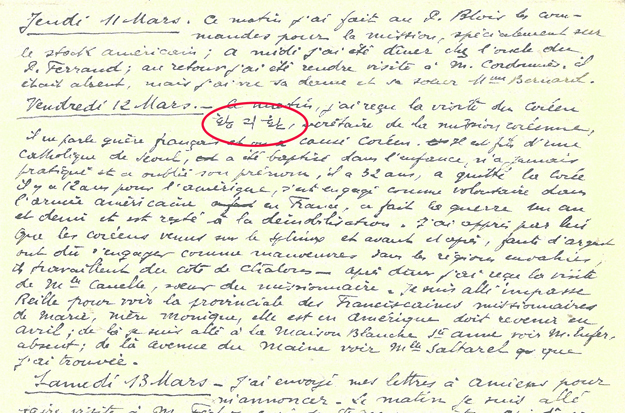 Jeudi 11 Mars. Ce matin j'ai fait au P. Blois les com-
mandes pour la mission, spécialement sur
le stock américain ; a midi j'ai été dîner chez l'oncle du
P. Ferrand ; au retour j'ai été rendre visite à M. Cordonnier. il
était absent, mais j'ai vu sa dame et sa soeur Mme Bernard.
Vendredi 12 Mars. - Ce matin, j'ai reçu la visite du Coréen
황긔환, secrétaire de la mission coréenne,
il ne parle guère français et on a causé Coréen. Il est fils d'une
catholique de Seoul, a été baptisé dans l'enfance, n'a jamais
pratiqué et a oublié son prénom, il a 32 ans, a quitté la Corée
il y a 12 ans pour l'amérique, s'est engagé comme volontaire dans
l'armée américaine en France, a fait la guerre un an
et demi et est resté à la démobilisation. J'ai appris par lui
que les coréens venus sur le Sphinx et avant et après, faute d'argent
ont dû s'engager comme manoeuvres dans les régions envahies,
ils travaillent du côté de Chalons - après dîner j'ai reçu la visite
de Mlle Canelle, soeur du missionnaire. Je suis allé impasse
Reille pour voir la provinciale des Franciscaines missionnaires
de Marie, mère Monique, elle est en amérique doit revenir en
avril ; de là je suis allé à la Maison Blanche Ste anne voir M.
absent ; de là avenue du Maine voir Mlle Saltarel que
j'ai trouvée.
Samedi 13 Mars - J'ai envoyé mes lettres à amiens pour
m'annoncer. Le matin je suis allé
faire visite à M.